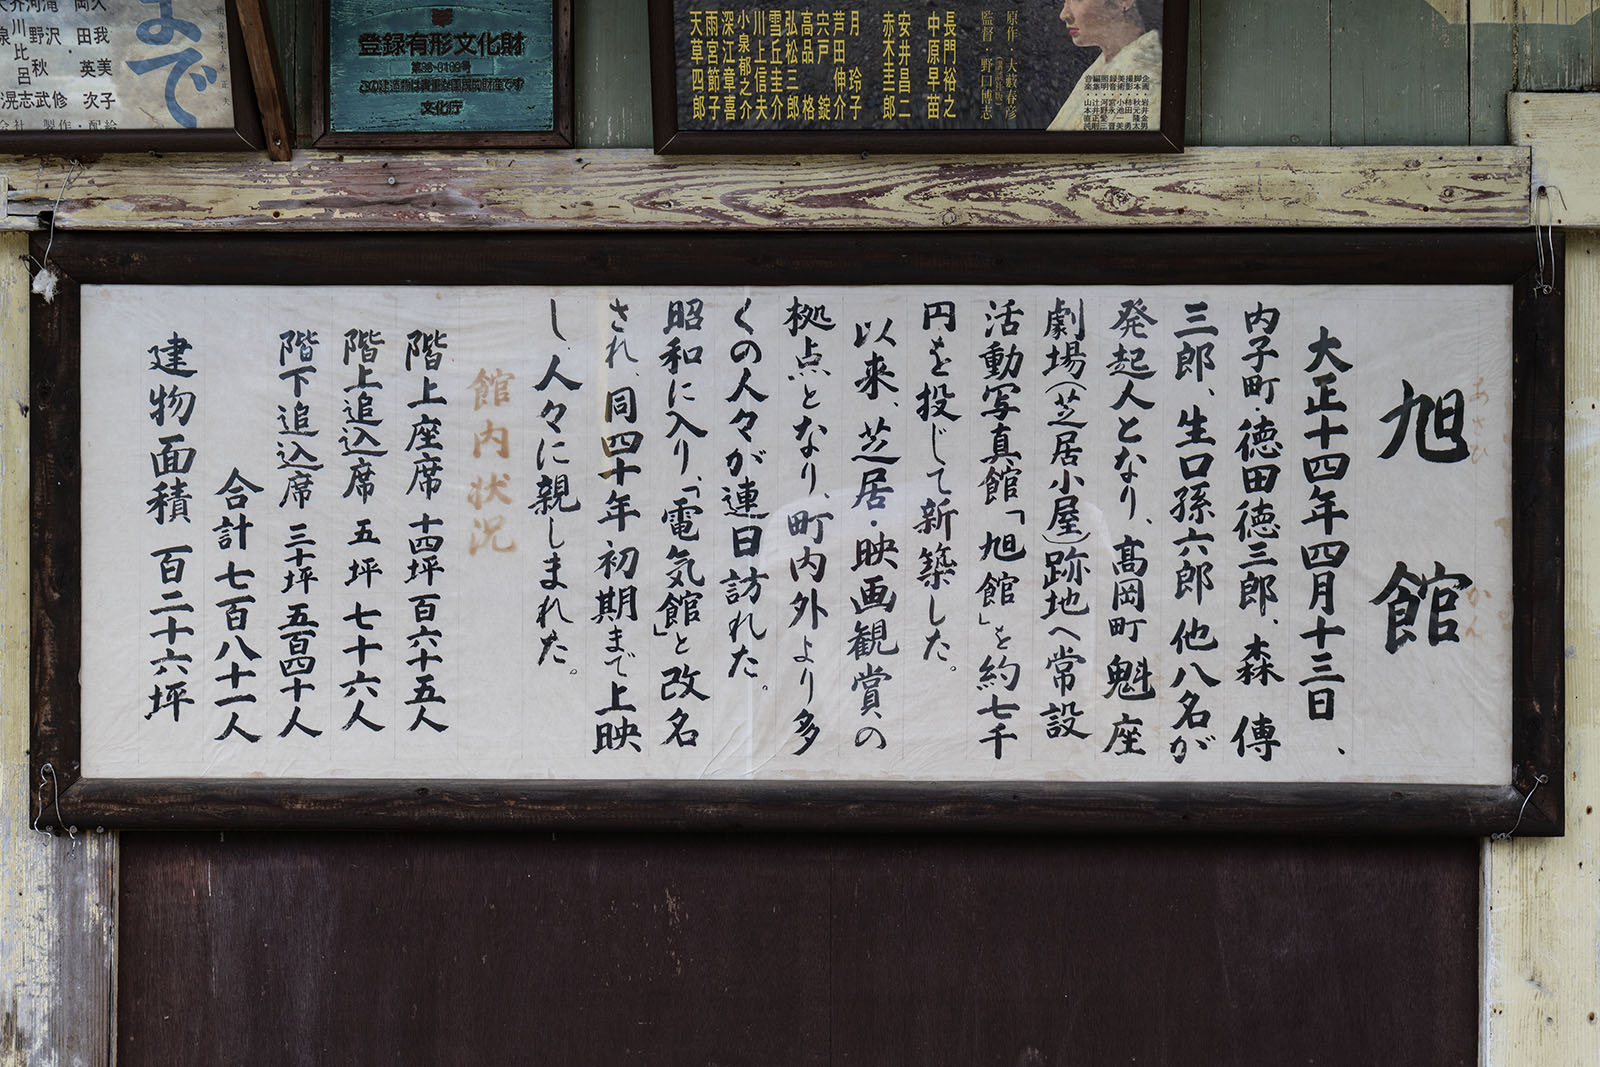 旭館
あさひ かん
大正十四年四月十三日、
内子町・徳田徳三郎、森 傳
三郎、生口孫六郎 他八名が
発起人となり、髙岡町 魁座
劇場(芝居小屋)跡地へ常設
活動写真館「旭館」を約七千
円を投じて新築した。
以来、芝居・映画観賞の
拠点となり、町内外より多
くの人々が連日訪れた。
昭和に入り、「電気館」と改名
され、同四十年初期まで上映
し、人々に親しまれた。
館内状況
階上座席 十四坪 百六十五人
階上追込席 五坪 七十六人
階下追込席 三十坪 五百四十人
合計 七百八十一人
建物面積 百二十六坪
原作・大藪春彦
監督・野口博志
長門裕之
中原早苗
安井昌二
赤木圭一郎
月 玲子
芦田伸介
宍戸 錠
高品 格
弘松三郎
雪丘圭介
川上信夫
小泉郁之介
深江章喜
雨宮節子
天草四郎
登録有形文化財
この建造物は貴重な国民的財産です
文化庁
まで
我 美子
田 英次
製作・配給